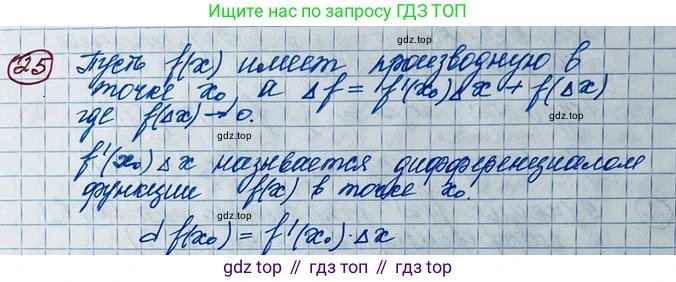 Ищите нас по запросу ГДЗ ТОП
gdz.top
25 Пусть f(x) имеет производную в
точке x₀ а Δf = f'(x₀)Δx + f(Δx)
где f(Δx) → 0.
gdz.top
f'(x₀)Δx называется дифференциалом
функции f(x) в точке x₀.
gdz.top
d f(x₀) = f'(x₀)·Δx
gdz.top // гдз топ // гдз.top